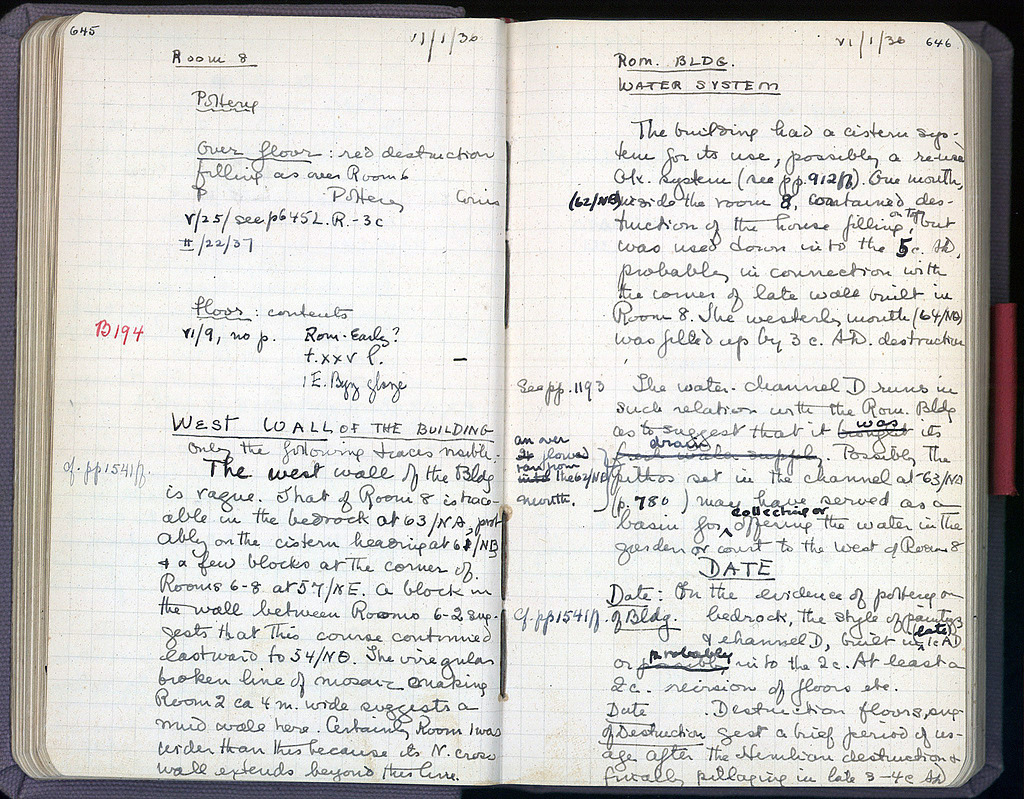 645
VI/1/36
Room 8
Pottery
Over floor : red destruction
filling as over Room 6
P Pottery Coins
V/25/ see p645 L.R.-3c
/22/37
floor : contents
B194
VI/9, no p. Rom-Early?
t.xxv P. –
1 E. Byz glaze
WEST WALL OF THE BUILDING
Only the following traces visible.
cf. pp1541ff.
The west wall of the Bldg
is vague. That of Room 8 is trace-
able in the bedrock at 63/NA, prob-
ably on the cistern heading at 61/NB
& a few blocks at the corner of
Rooms 6-8 at 57/NE. A block in
the wall between Rooms 6-2 sug-
gests that this course continued
eastward to 54/NΘ. The irregular
broken line of mosaic making
Room 2 ca 4 m. wide suggests a
mud wall here. Certainly Room 1 was
wider than this because its N. cross
wall extends beyond this line.
VI/1/36 646
ROM. BLDG.
WATER SYSTEM
The building had a cistern sys-
tem for its use, possibly a re-use
Gk. system (see pp.912ff). One mouth,
(62/NB) inside the room 8, contained des-
truction of the house filling on top, but
was used down into the 5c. AD,
probably in connection with
the corner of late wall built in
Room 8. The westerly mouth (64/NA)
was filled up by 3 c. AD. destruction
See pp. 1193
The water-channel D runs in
such relation with the Rom. Bldg
as to suggest that it brought was its
fresh water supply drain. Possibly the
an over
flowed
ran from
into the 62/NB
mouth.
pithos set in the channel at 63/NA
(p. 780 ) may have served as a
basin for collecting or offering the water in the
garden or court to the west of Room 8
DATE
Date : On the evidence of pottery on
Cf. pp1541ff. of Bldg. bedrock, the style of paintings
& channel D, built in late 1c AD
or possibly probably into the 2c. At least a
2c. revision of floors etc.
Date . Destruction floors, sug-
of Destruction gest a brief period of us-
age after the Herulian destruction &
finally pillaging in late 3-4c AD